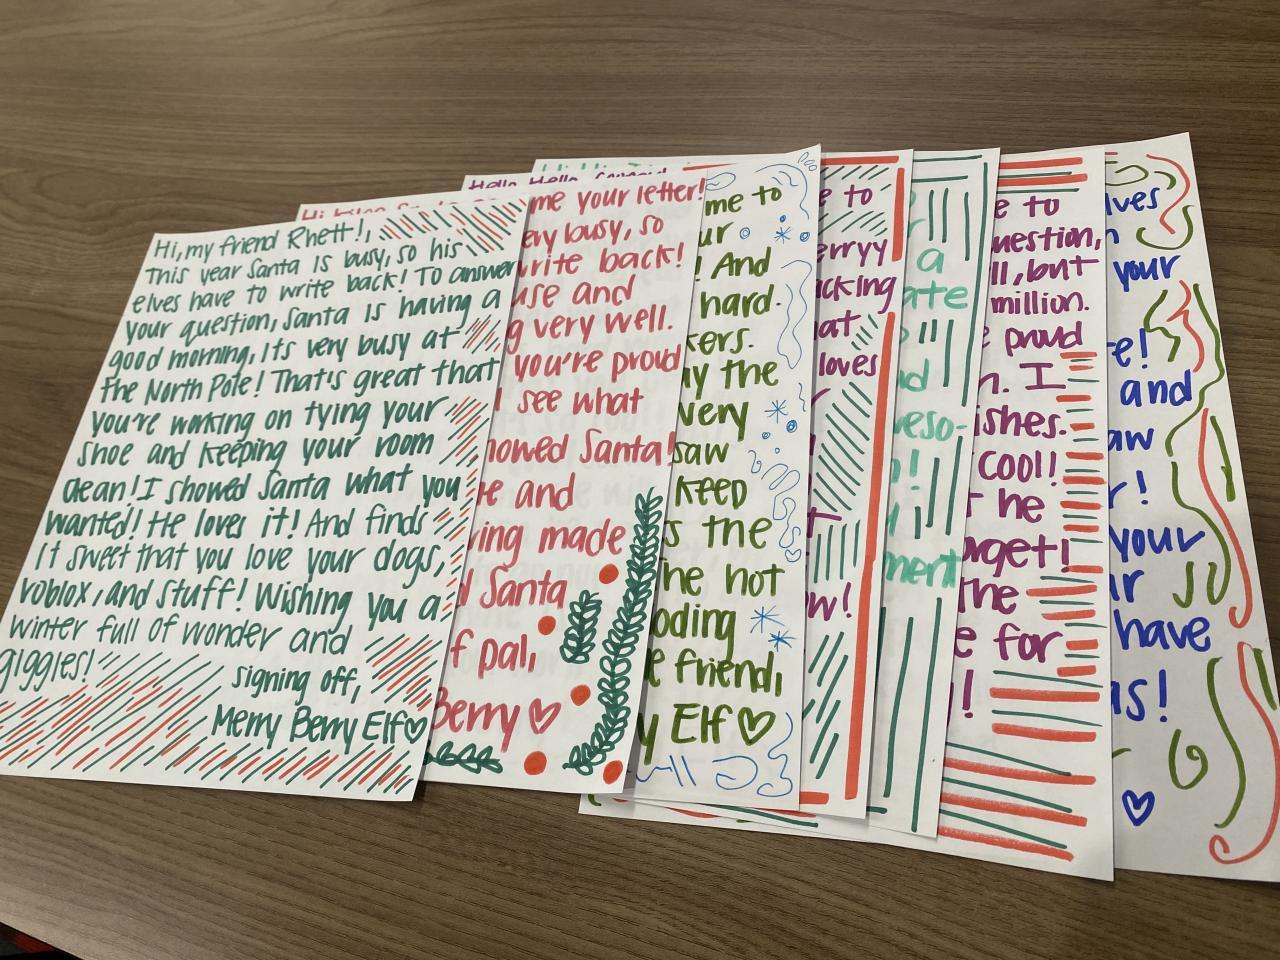 Hi, my friend Rhett!,
This year Santa is busy, so his
elves have to write back! To answer
your question, Santa is having a
good morning, its very busy at
the North Pole! That's great that
you're working on tying your
shoe and keeping your room
clean! I showed Santa what you
wanted! He loves it! And finds
it sweet that you love your dogs,
roblox, and stuff! Wishing you a
winter full of wonder and
giggles!
signing off,
Merry Berry Elf
me your letter!
ery busy, so
write back!
use and
g very well.
you're proud
I see what
howed Santa!
e and
ving made
d Santa
f pal,
Berry
Hello Hello,
me to
ur
! And
hard.
kers.
y the
very
saw
keep
s the
he not
oding
e friend,
y Elf
e to
erryy
acking
at
loves
w!
a
ate
d
eso-
n!
ment
e to
uestion,
ll, but
million.
e proud
n. I
ishes.
cool!
t he
rget!
the
e for
!
lves
n
your
e!
and
aw
r!
your
ur
have
as!